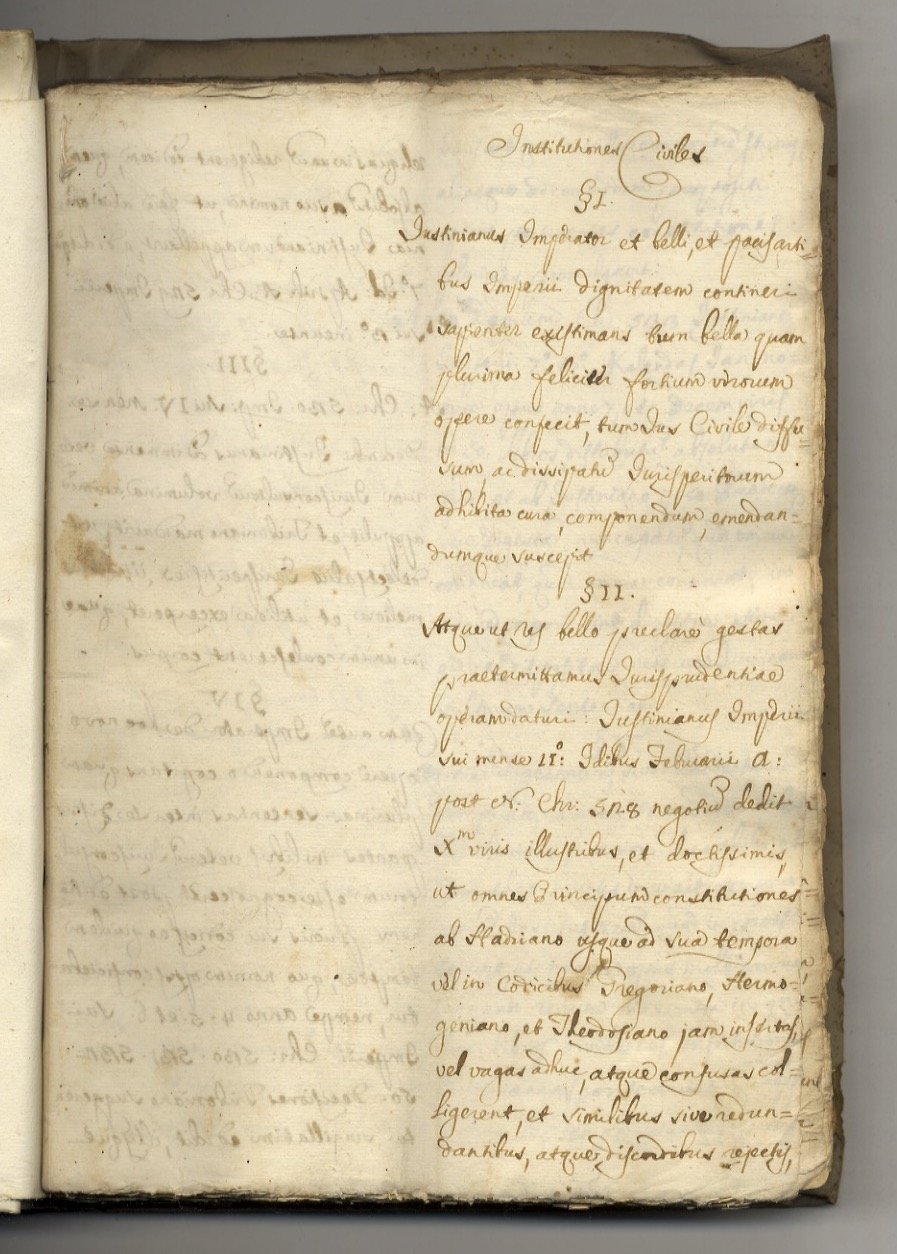 Institutiones Civiles
§ I.
Justinianus Imperator et belli, et pacis arti=
bus Imperii dignitatem contineri
sapienter existimans tum bella quam
plurima feliciter fortium virorum
opere confecit, tum Jus Civile diffu=
sum, ac dissipatu Jurisperitorum
adhibita cura, componendum, emendan=
dumque suscepit
§ II.
Atque ut res bello preclarè gestas
praetermittamus Jurisprudentiae
operam daturi: Justinianus Imperii
sui mense II°: Idibus Februarii a:
post Chr: 528 negotiu dedit
Xm viris illustribus, et doctissimis,
ut omnes Principum constitutiones
ab Hadriano usque ad sua tempora
vel in Codicibus Gregoriano, Hermo=
geniano, et Theodosiano jam insertas,
vel vagas adhuc, atque confusas col=
ligerent, et similibus sive redun=
dantibus, atque discordibus rejectis,